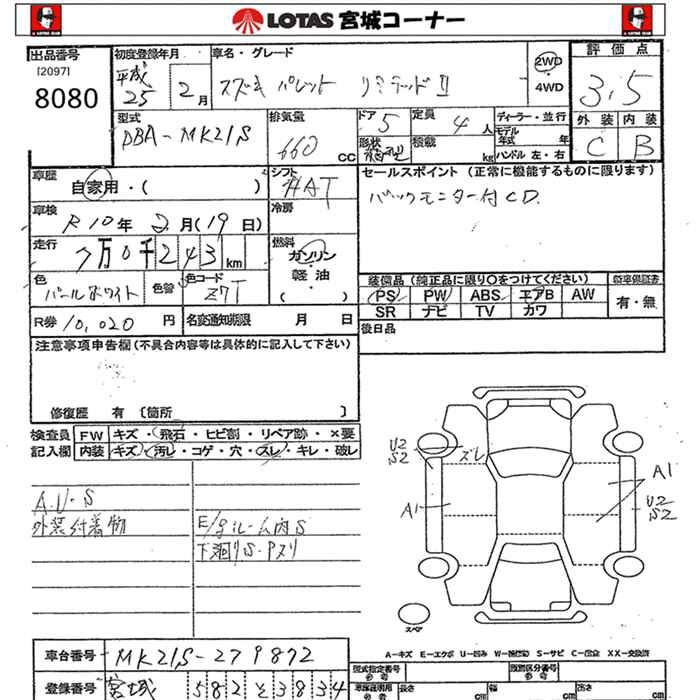 LOTAS 宮城コーナー
出品番号
[2097]
8080
初度登録年月
平成
25 年 2 月
車名・グレード
スズキ パレット リミテッドⅡ
2WD
・
4WD
評価点
3.5
型式
DBA-MK21S
排気量
660 cc
ドア 5
定員 4 人
形状
積載 kg
ディーラー・並行
モデル年式 年
ハンドル 左・右
外装 内装
C B
車歴
自家用・( )
シフト
AT
冷房
車検
R10年 2月(19日)
走行
7万0千243km
燃料
ガソリン
軽・油
( )
セールスポイント (正常に機能するものに限ります)
バックモニター付 CD.
色
パールホワイト
色替
色コード
Z7T
装備品 (純正品に限り○をつけてください)
PS PW ABS エアB AW
SR ナビ TV カワ
有・無
R券 10,020 円
名変通知期限 月 日
後日品
注意事項申告欄 (不具合内容等は具体的に記入して下さい)
修復歴 有 〔箇所 〕
検査員 FW キズ・飛石・ヒビ割・リペア跡・×要
記入欄 内装 キズ・汚レ・コゲ・穴・スレ・キレ・破レ
A.U.S
外装付着物
E/gルーム内S
下廻りS・Pヌリ
U2
S2
ズレ
A1
A1
U2
S2
スペア
A-キズ E-エクボ U-凹み W-補修跡 S-サビ C-腐食 XX-交換済
車台番号 MK21S-279872
登録番号 宮城 582 そ 3834
型式指定番号
類別区分番号
長さ cm
幅 cm
高さ cm